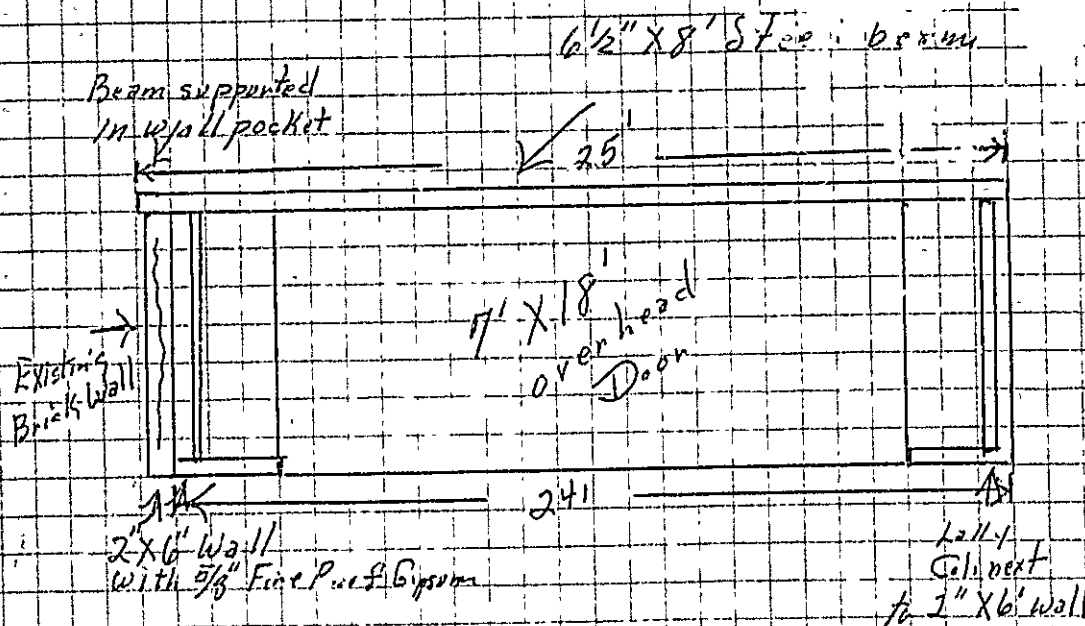 6 1/2" X 8' Steel beam
Beam supported
in wall pocket
25'
7' X 18'
overhead
Door
Existing
Brick Wall
24'
2" X 6" Wall
with 5/8" Fire Proof Gypsum
Lally
Col. next
to 2" X 6' wall